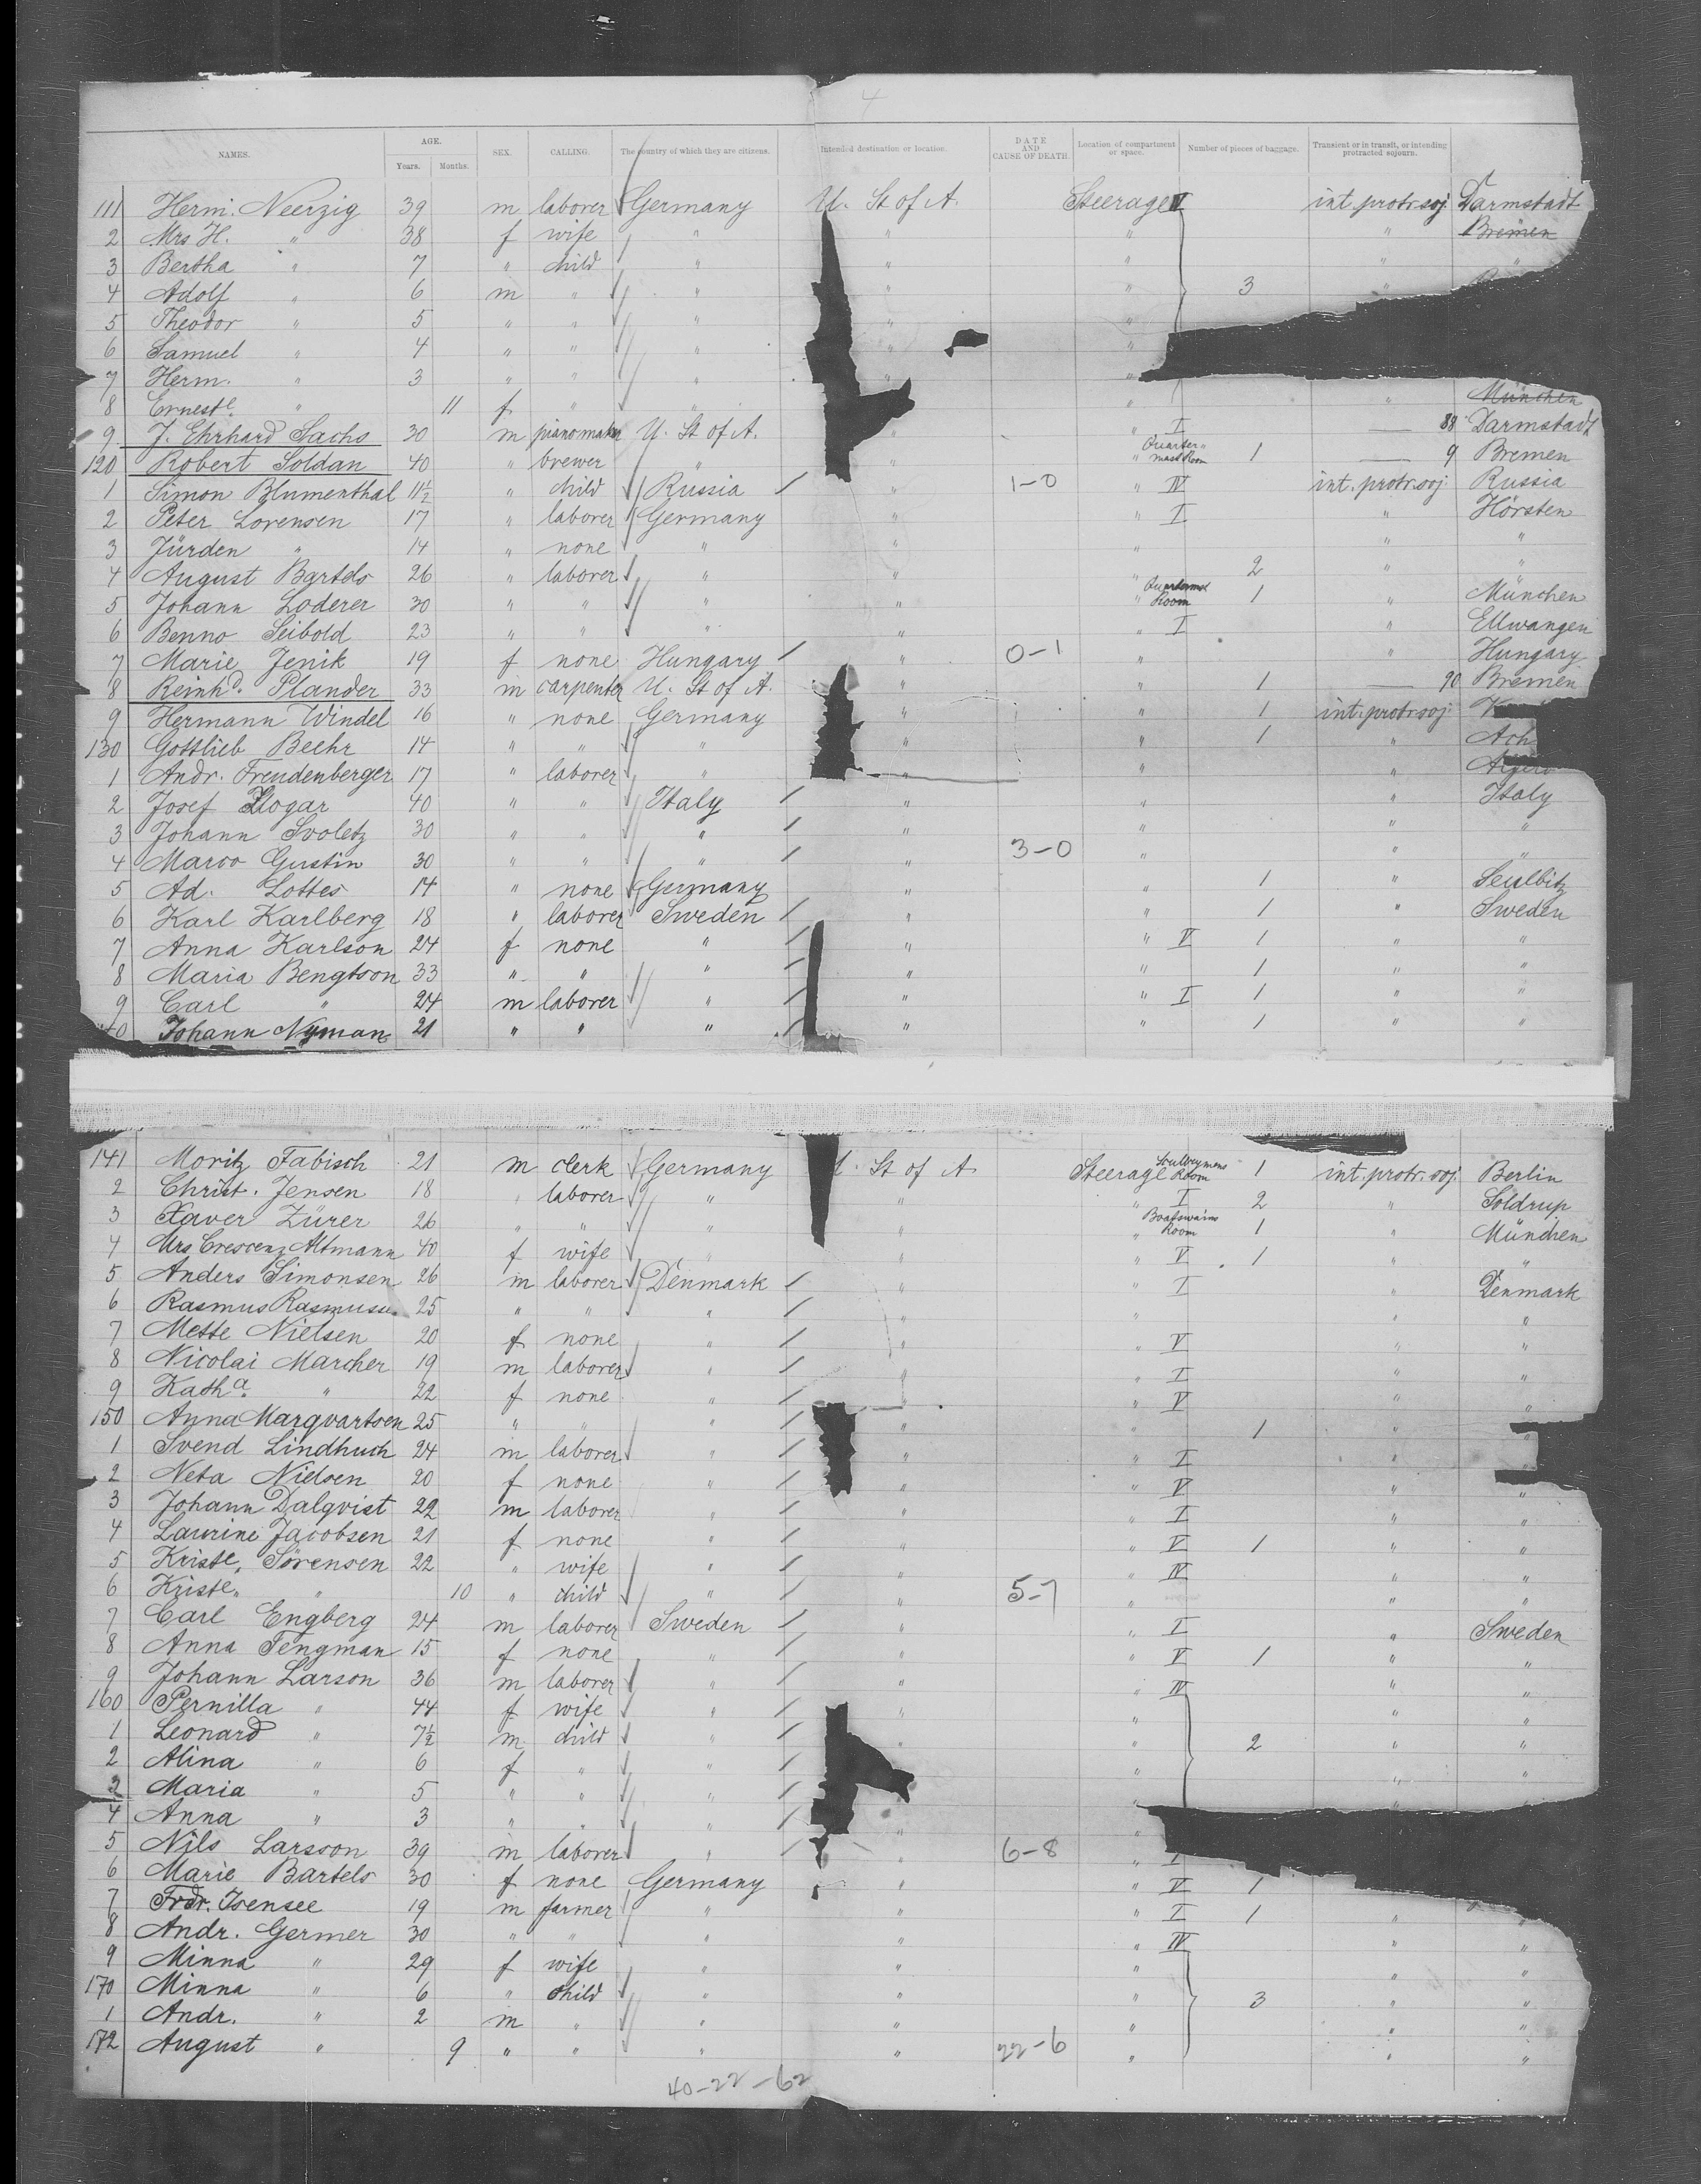 4
NAMES. AGE. Years. Months. SEX. CALLING. The country of which they are citizens. Intended destination or location. DATE AND CAUSE OF DEATH. Location of compartment or space. Number of pieces of baggage. Transient or in transit, or intending protracted sojourn.
111 Herm. Neerzig 39 m laborer Germany U. St of A. Steerage IV int. protr. soj. Darmstadt
2 Mrs H. " 38 f wife " " " " Bremen
3 Bertha " 7 " child " " " " "
4 Adolf " 6 m " " " " 3 "
5 Theodor " 5 " " " "
6 Samuel " 4 " " " " "
7 Herm. " 3 " " " " "
8 Ernest e. " 11 f " " " " München
9 J. Ehrhard Sachs 30 m pianomaker U. St of A. " " I — 88 Darmstadt
120 Robert Soldan 40 " brewer " " Quarter mast Room 1 — 9 Bremen
1 Simon Blumenthal 11½ " child Russia / " 1-0 " IV int. protr. soj. Russia
2 Peter Lorensen 17 " laborer Germany " " I " Hörsten
3 Jürden " 14 " none " " " " "
4 August Bartels 26 " laborer " " " 2 " "
5 Johann Loderer 30 " " " " " Room 1 " München
6 Benno Seibold 23 " " " " " I " Ellwangen
7 Marie Jenik 19 f none Hungary / " 0-1 " " Hungary
8 Reinhd. Plander 33 m carpenter U. St of A. " " 1 — 90 Bremen
9 Hermann Windel 16 " none Germany " 1 int. protr. soj.
130 Gottlieb Beehr 14 " " " " " 1 " Ach
1 Andr. Freudenberger 17 " laborer " " " "
2 Josef Zlogar 40 " " Italy / " " " Italy
3 Johann Svoletz 30 " " " / " " " "
4 Marco Gustin 30 " " " / " 3-0 " " "
5 Ad. Lottes 14 " none Germany " " 1 " Seulbitz
6 Karl Karlberg 18 " laborer Sweden / " " 1 " Sweden
7 Anna Karlson 24 f none " / " " V 1 " "
8 Maria Bengtson 33 " " " / " " 1 " "
9 Carl " 24 m laborer " / " " I 1 " "
40 Johann Nyman 21 " " " / " " 1 " "
141 Moritz Fabisch 21 m clerk Germany U. St of A Steerage Room 1 int. protr. soj. Berlin
2 Christ. Jensen 18 " laborer " " " I 2 " Soldrup
3 Xaver Zürer 26 " " " " " Boatswains Room 1 " München
4 Mrs Crescenz Altmann 40 f wife " " " V 1 " "
5 Anders Simonsen 26 m laborer Denmark / " " I " Denmark
6 Rasmus Rasmussen 25 " " " / " " " "
7 Mette Nielsen 20 f none " / " " V " "
8 Nicolai Marcher 19 m laborer " / " " I " "
9 Katha. " 22 f none " / " " V " "
150 Anna Marqvartsen 25 " " " / " " 1 " "
1 Svend Lindhuch 24 m laborer " / " " I " "
2 Neta Nielsen 20 f none " / " " V " "
3 Johann Dalqvist 22 m laborer " / " " I " "
4 Laurine Jacobsen 21 f none " / " " V 1 " "
5 Kriste. Sörensen 22 " wife " / " " IV " "
6 Kriste. " 10 " child " / " 5-7 " " "
7 Carl Engberg 24 m laborer Sweden / " " I " Sweden
8 Anna Tengman 15 f none " / " " V 1 " "
9 Johann Larson 36 m laborer " / " " IV " "
160 Pernilla " 44 f wife " / " " " "
1 Leonard " 7½ m child " / " " 2 " "
2 Alina " 6 f " " / " " "
3 Maria " 5 " " " / " "
4 Anna " 3 " " " / " "
5 Nils Larsson 39 m laborer " / " 6-8 " I
6 Marie Bartels 30 f none Germany " " V 1
7 Frdr. Isensee 19 m farmer " " " I 1 " "
8 Andr. Germer 30 " " " " " IV " "
9 Minna " 29 f wife " " " " "
170 Minna " 6 " child " " " 3 " "
1 Andr. " 2 m " " " " " "
172 August " 9 " " " " 22-6 " " "
40-22-62